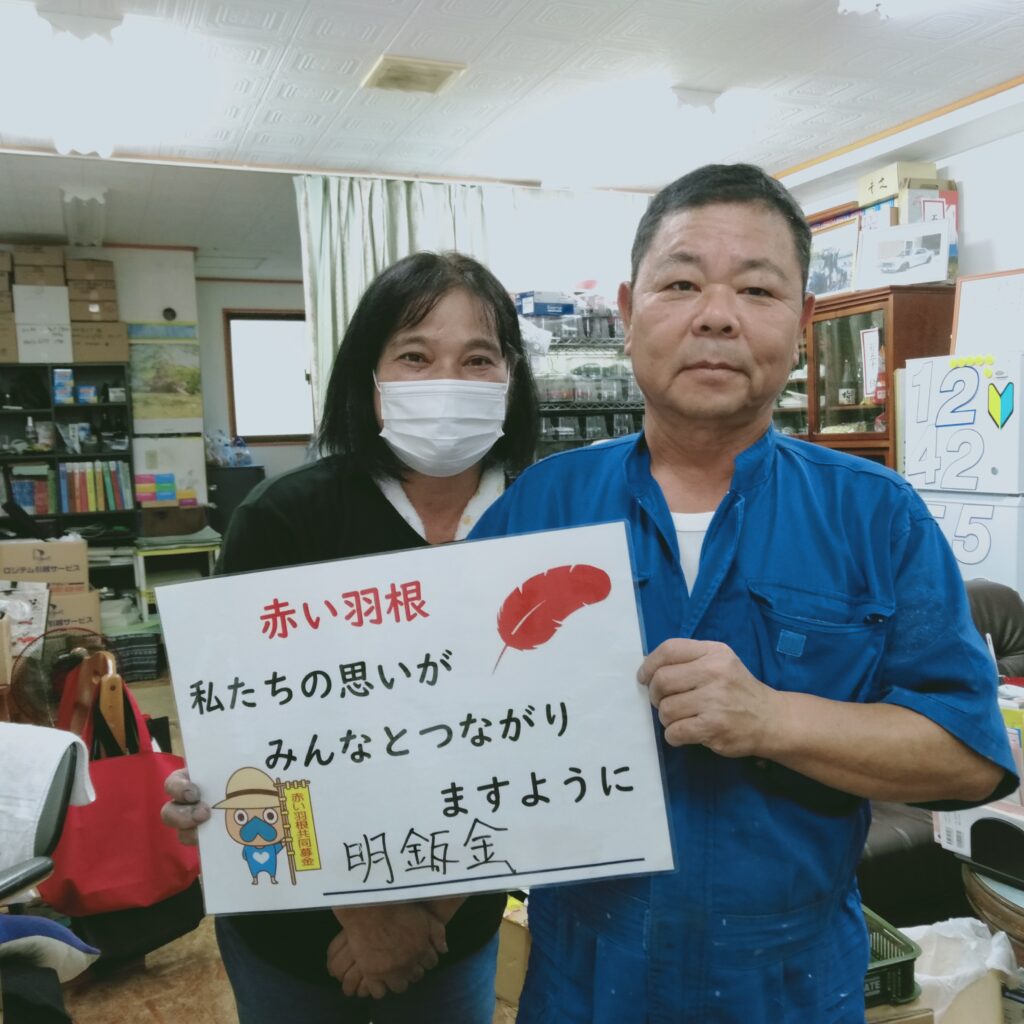 赤い羽根
私たちの思いが
みんなとつながり
ますように
赤い羽根共同募金
明鈑金
ロジテム引越サービス
12
42
55